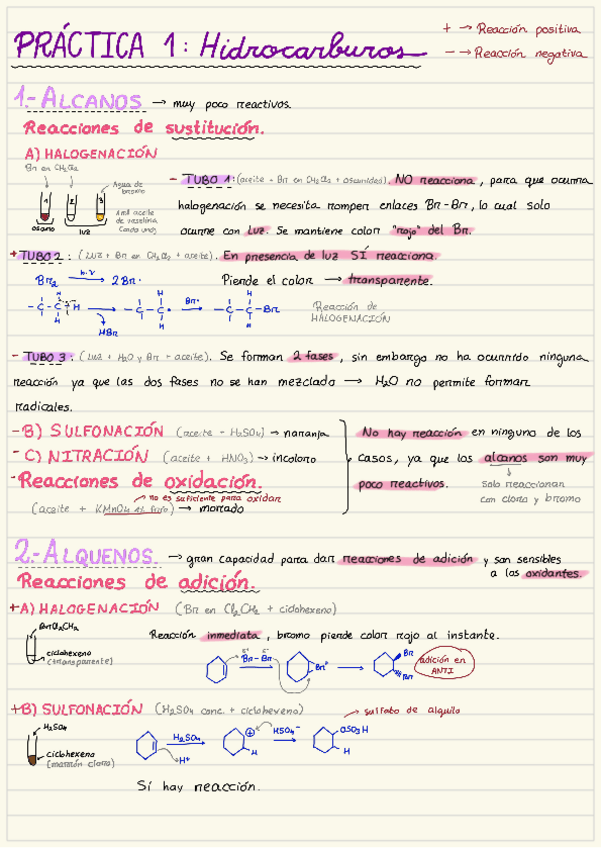 PRÁCTICA 1: Hidrocarburos
+ → Reacción positiva
- → Reacción negativa
1.- ALCANOS → muy poco reactivos.
Reacciones de sustitución.
A) HALOGENACIÓN
Br en CH₂Cl₂
Agua de bromo
1 2 3
oscuro luz
4 ml aceite de vaselina (cada uno)
- TUBO 1: (aceite + Br en CH₂Cl₂ + oscuridad). NO reacciona, para que ocurra
halogenación se necesita romper enlaces Br-Br, lo cual solo
ocurre con luz. Se mantiene color "rojo" del Br.
+ TUBO 2: (Luz + Br en CH₂Cl₂ + aceite). En presencia de luz SÍ reacciona.
Br₂ h.ν 2Br·
Pierde el color → transparente.
-C-C-H → -C-C· Br· → -C-C-Br
HBr
Reacción de
HALOGENACIÓN
- TUBO 3: (Luz + H₂O y Br + aceite). Se forman 2 fases, sin embargo no ha ocurrido ninguna
reacción ya que las dos fases no se han mezclado → H₂O no permite formar
radicales.
- B) SULFONACIÓN (aceite - H₂SO₄) → naranja
- C) NITRACIÓN (aceite + HNO₃) → incoloro
- Reacciones de oxidación.
no es suficiente para oxidar
(aceite + KMnO₄ ) → morado
No hay reacción en ninguno de los
casos, ya que los alcanos son muy
poco reactivos.
solo reaccionan
con cloro y bromo
2.- ALQUENOS. → gran capacidad para dar reacciones de adición y son sensibles
a los oxidantes.
Reacciones de adición.
+A) HALOGENACIÓN (Br en Cl₂CH₂ + ciclohexeno)
Br Cl₂CH₂
ciclohexeno
(transparente)
Reacción inmediata, bromo pierde color rojo al instante.
δ+ δ-
Br-Br
Br⁺
Br
Br
adición en
ANTI
+B) SULFONACIÓN (H₂SO₄ conc. + ciclohexeno)
sulfato de alquilo
H₂SO₄
ciclohexeno
(marrón claro)
H₂SO₄
H⁺
+
H
HSO₄⁻
OSO₃H
H
Sí hay reacción.